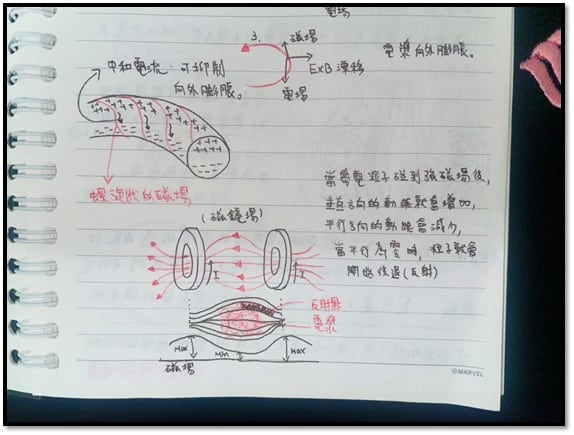 電場
3.
磁場
電漿向外膨脹。
ExB 漂移
電場
中和電流:可抑制
向外膨脹。
螺旋狀的磁場
當帶電粒子碰到強磁場後,
垂直方向的動能就會增加,
平行方向的動能會減少,
當平行為零時,粒子就會
開始後退(反射)
(磁鏡場)
I
I
反射點
電漿
Max
Min
Max
磁場
©MARVEL